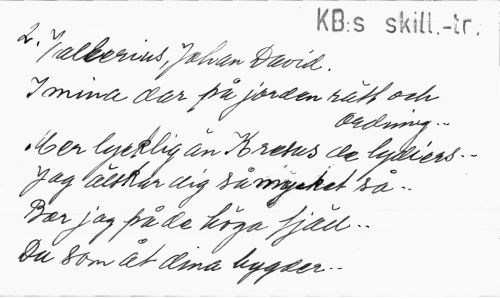 KB:s skill.-tr.
2. Valerius, Johan David.
I mina dar på jorden rätt och
ordning..
Mer lycklig än Kresus de lydiers..
Jag älskar dig så mycket så..
Bor jag på de höga fjäll..
Du som åt dina bygder..